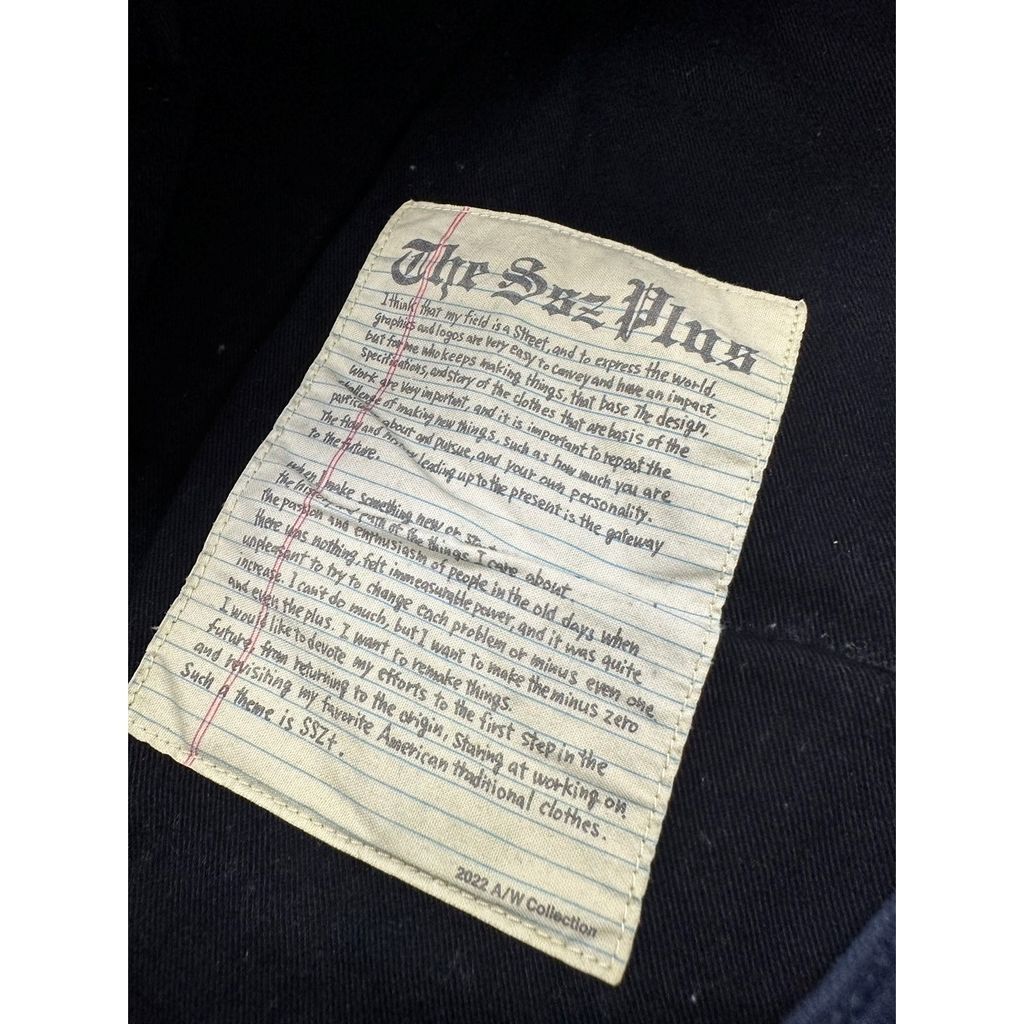 The Ssz Plus
I think that my field is a Street, and to express the world,
graphics and logos are very easy to convey and have an impact,
but for me who keeps making things, that base the design,
specifications, and story of the clothes that are basis of the
work are very important, and it is important to repeat the
challenge of making new things, such as how much you are
particular about and pursue, and your own personality.
The flow and now leading up to the present is the gateway
to the future.
when I make something new or
the first and path of the things I care about
the passion and enthusiasm of people in the old days when
there was nothing, felt immeasurable power, and it was quite
unpleasant to try to change each problem or minus even one
increase. I can't do much, but I want to make the minus zero
and even the plus. I want to remake things.
I would like to devote my efforts to the first step in the
future, from returning to the origin, Staring at working on
and revisiting my favorite American traditional clothes.
Such a theme is SSZ+.
2022 A/W Collection